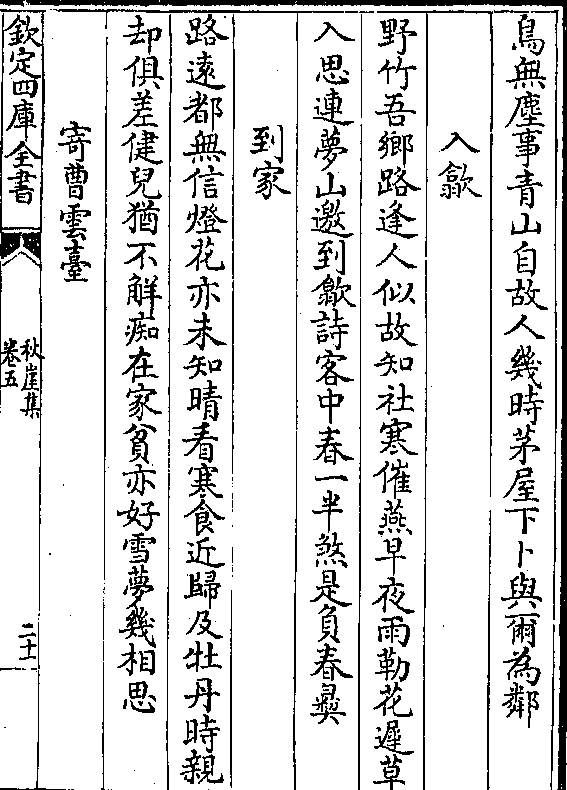 鳥無塵事青山自故人幾時茅屋下卜與爾為鄰
入歙
野竹吾鄉路逢人似故知社寒催燕早夜雨勒花遲草
入思連夢山邀到歙詩客中春一半煞是負春彛
到家
路遠都無信燈花亦未知晴看寒食近歸及牡丹時親
却俱差健兒猶不觧痴在家貧亦好雪夢幾相思
寄曹雲臺
欽定四庫全書
秋崖集
卷五
二十一